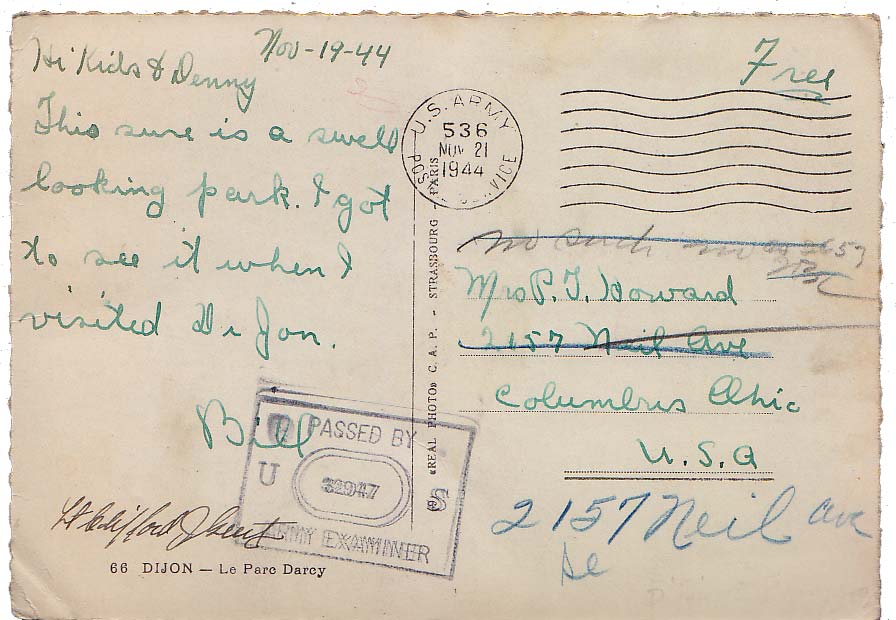 Nov-19-44
Hi Kids & Denny
This sure is a swell
looking park. I got
to see it when I
visited Di Jon.
Bill
Free
U.S. ARMY
536
NOV 21
1944
POS
VICE
no such
Mrs P. T. Howard
2157 Neil Ave
Columbus Ohio
U.S.A
2157 Neil Ave
PASSED BY
U S
32947
ARMY EXAMINER
66 DIJON — Le Parc Darcy
«REAL PHOTO» C. A. P. - STRASBOURG PARIS